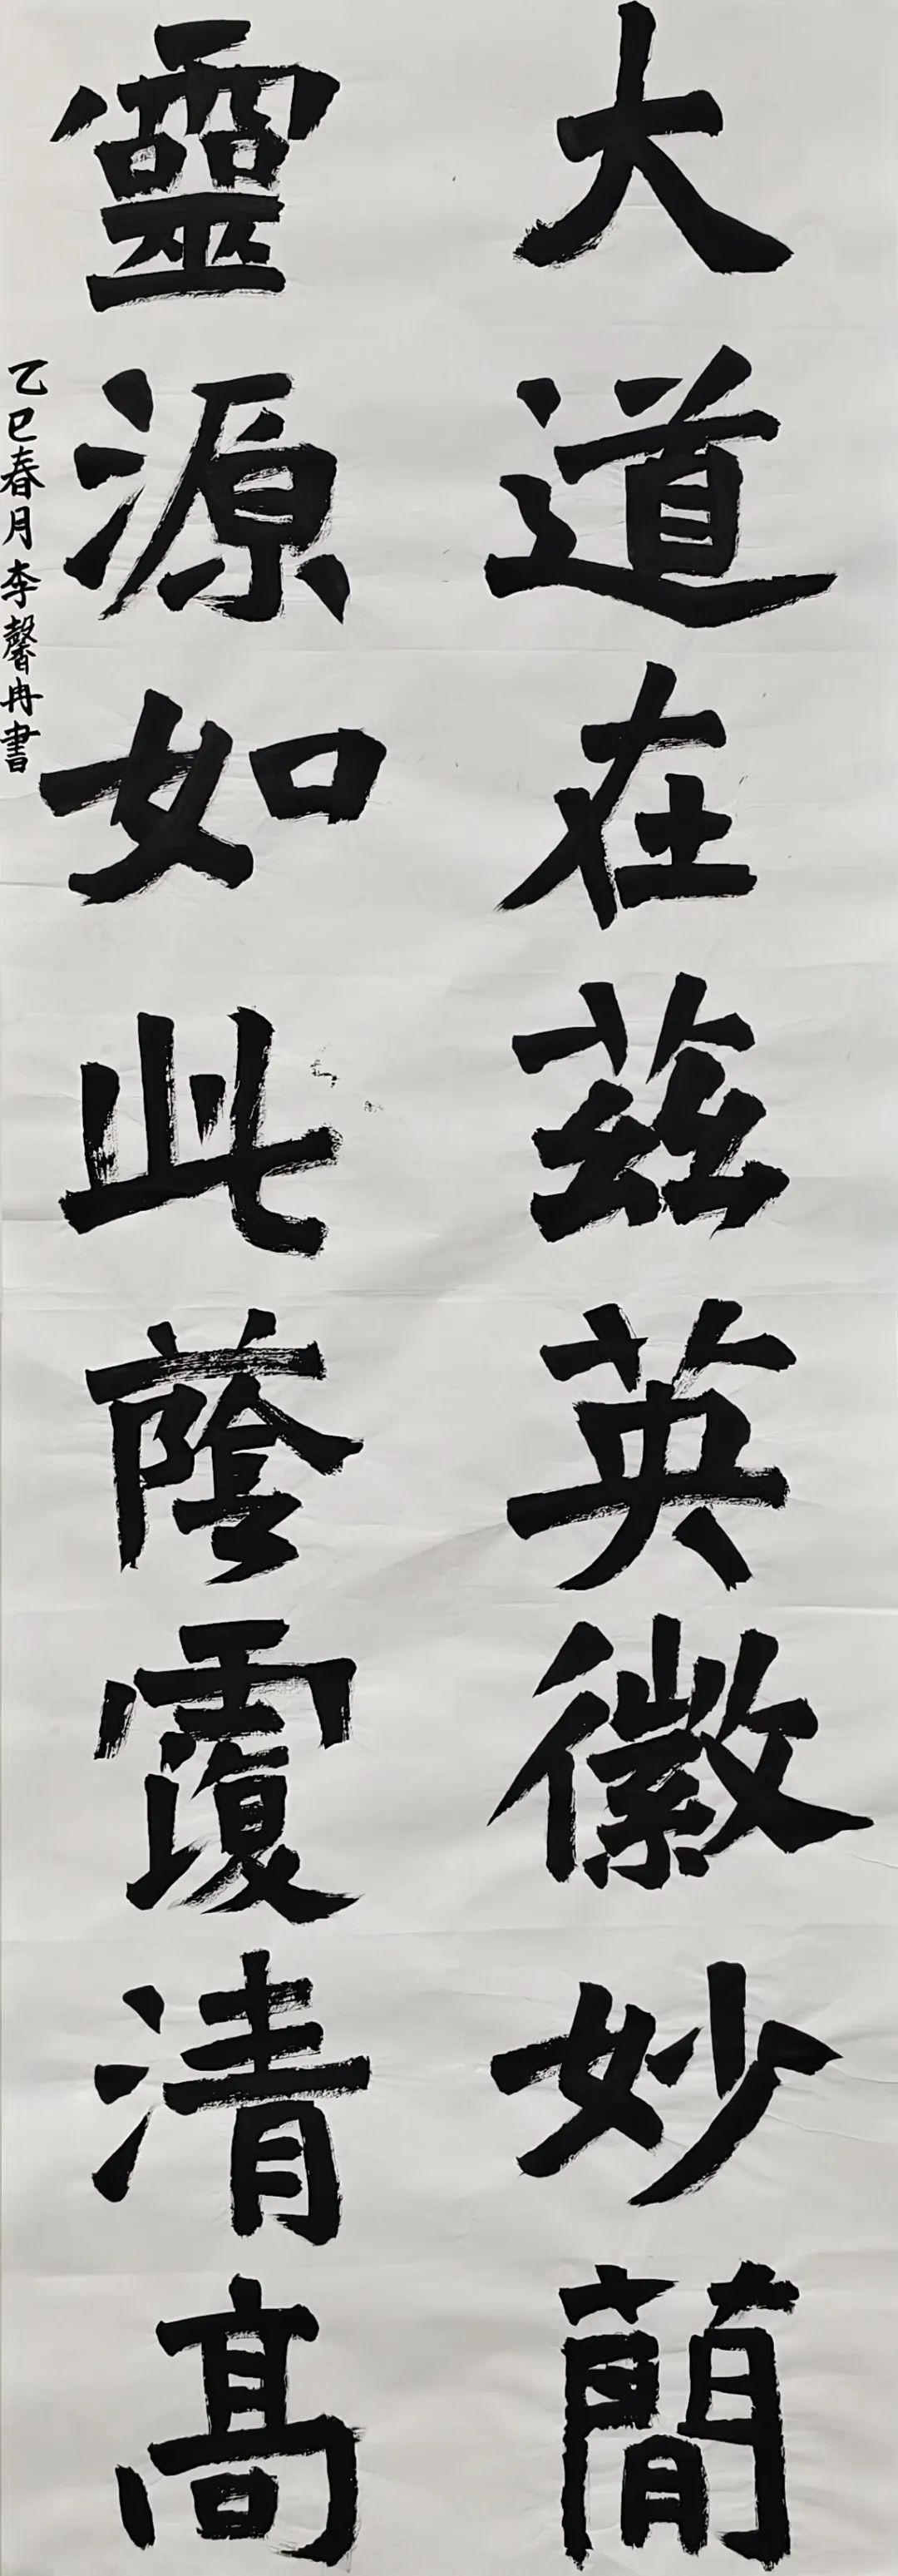 大道在茲英徽妙簡
靈源如此蔭覆清高
乙巳春月李馨冉書